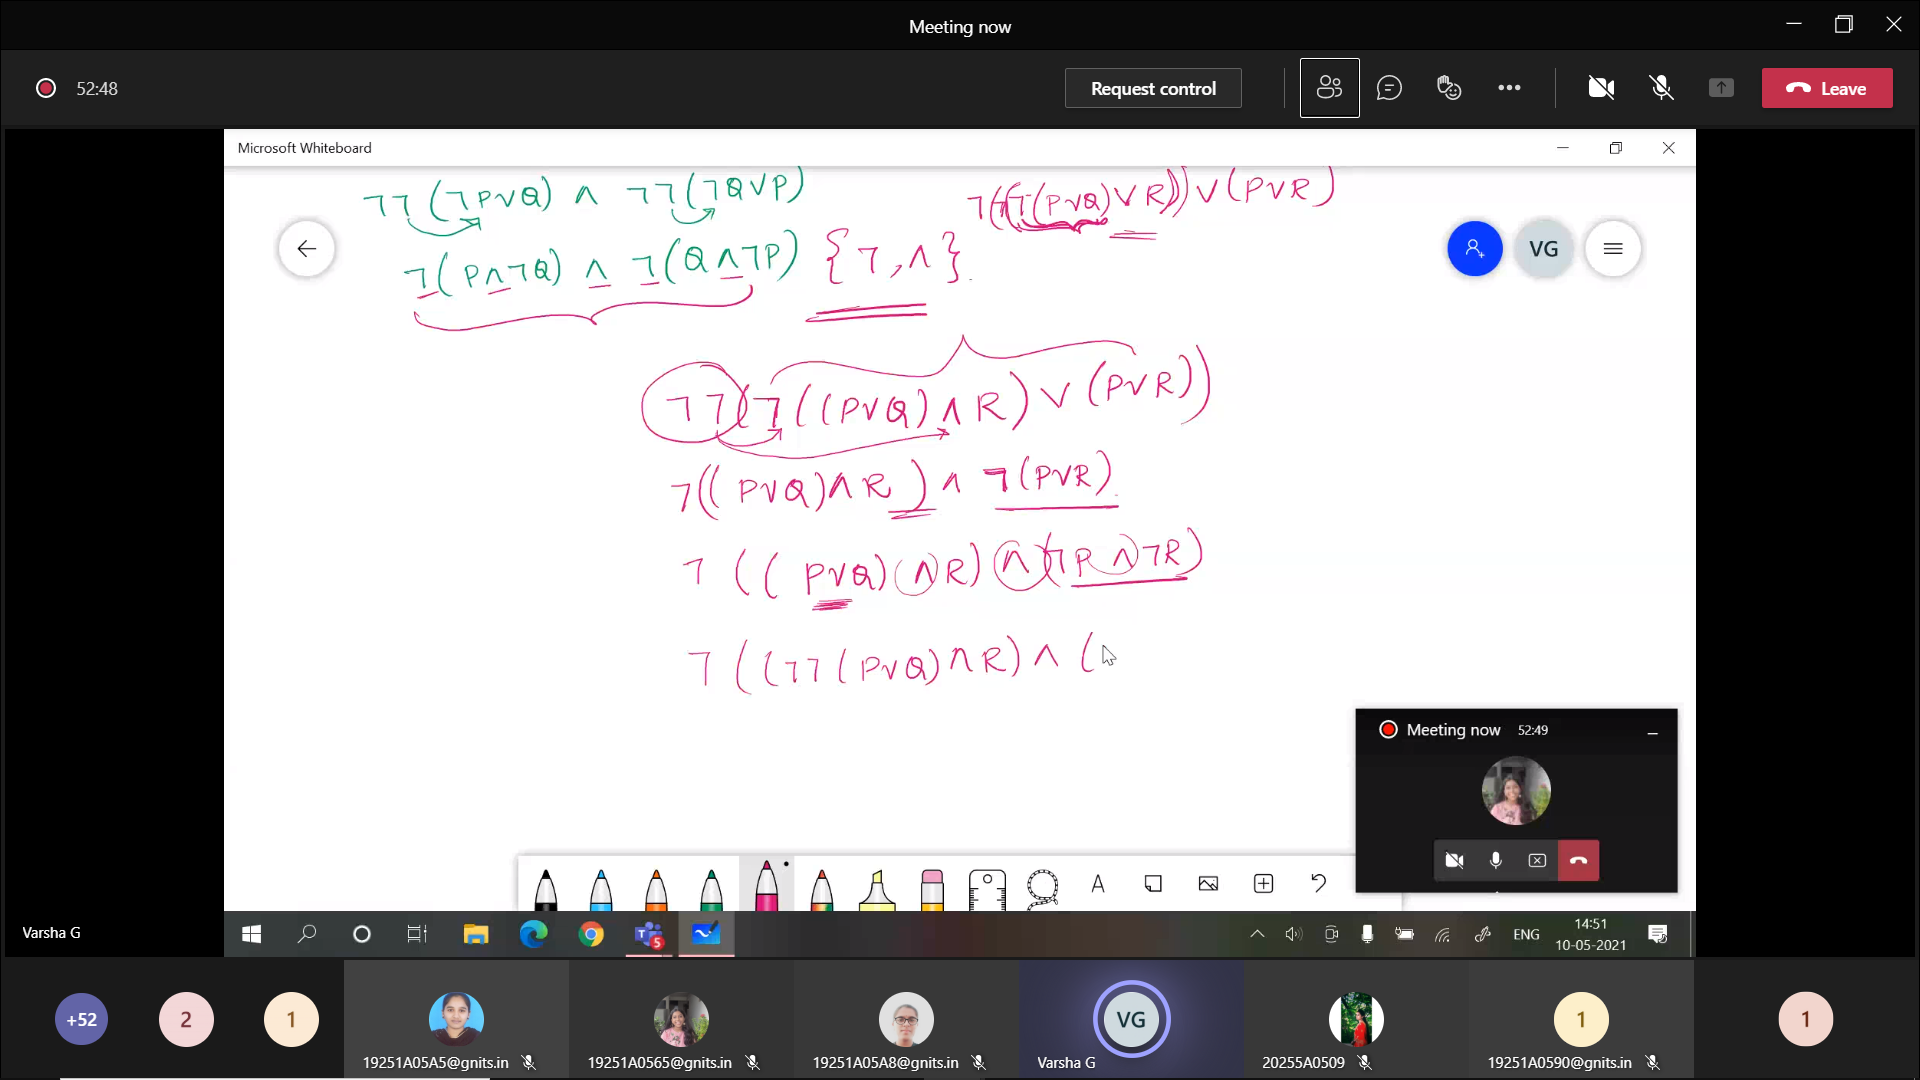 Meeting now
52:48
Request control
Leave
Microsoft Whiteboard
¬¬(¬P∨Q) ∧ ¬¬(¬Q∨P)
¬((¬(P∨Q)∨R))∨(P∨R)
¬(P∧¬Q) ∧ ¬(Q∧¬P) {¬,∧}.
VG
¬¬(¬((P∨Q)∧R)∨(P∨R))
¬((P∨Q)∧R) ∧ ¬(P∨R)
¬((P∨Q)∧R)∧(¬P∧¬R)
¬((¬¬(P∨Q)∧R)∧(
Meeting now 52:49
A
Varsha G
5
ENG
14:51
10-05-2021
+52
2
1
19251A05A5@gnits.in
19251A0565@gnits.in
19251A05A8@gnits.in
VG
Varsha G
20255A0509
1
19251A0590@gnits.in
1